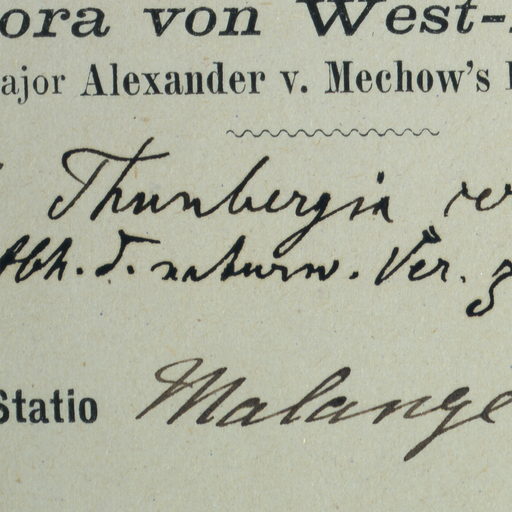 ora von West-
ajor Alexander v. Mechow's
Thunbergia
Abh. d. naturw. Ver. z
Statio Malange